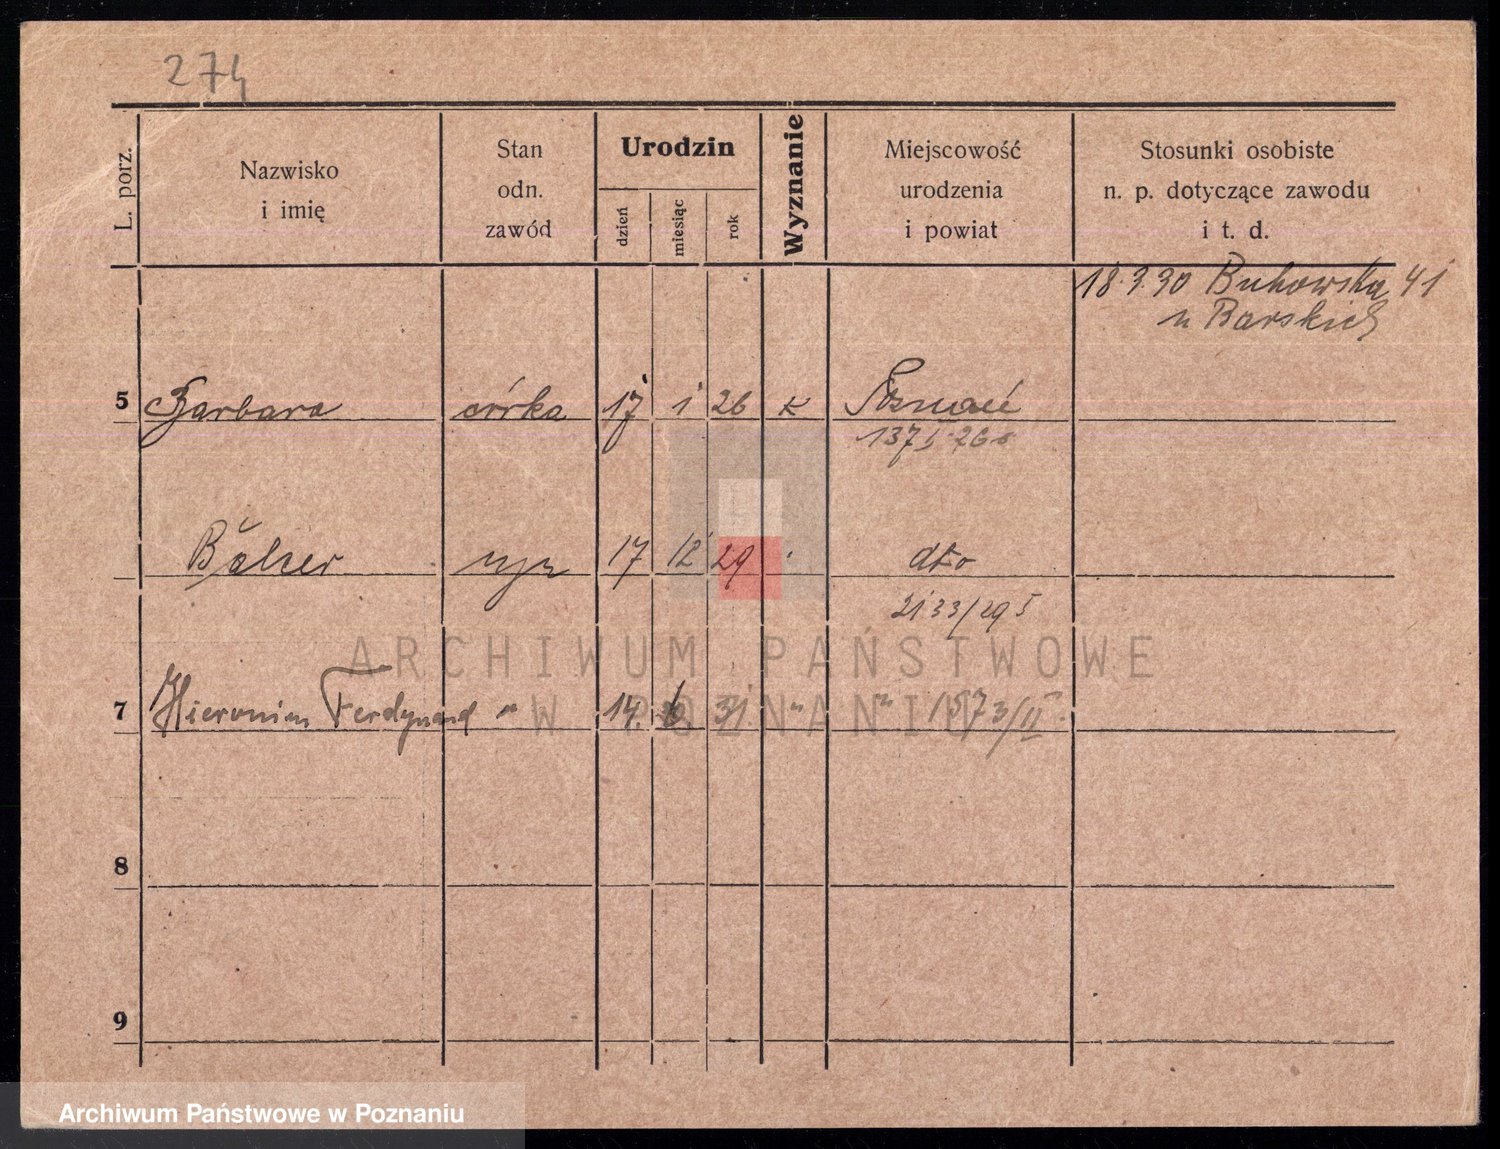 274
L. porz.
Nazwisko
i imię
Stan
odn.
zawód
Urodzin
dzień
miesiąc
rok
Wyznanie
Miejscowość
urodzenia
i powiat
Stosunki osobiste
n. p. dotyczące zawodu
i t. d.
18.3.30 Bukowska 41
u Barskich
5 Barbara córka 17 1 26 K Poznań
syn 17 12 29 dto
2133/29 I
7 Hieronim Ferdynand " 14. 6. 31 " " 1573/II
8
9
ARCHIWUM PAŃSTWOWE
W POZNANIU
Archiwum Państwowe w Poznaniu